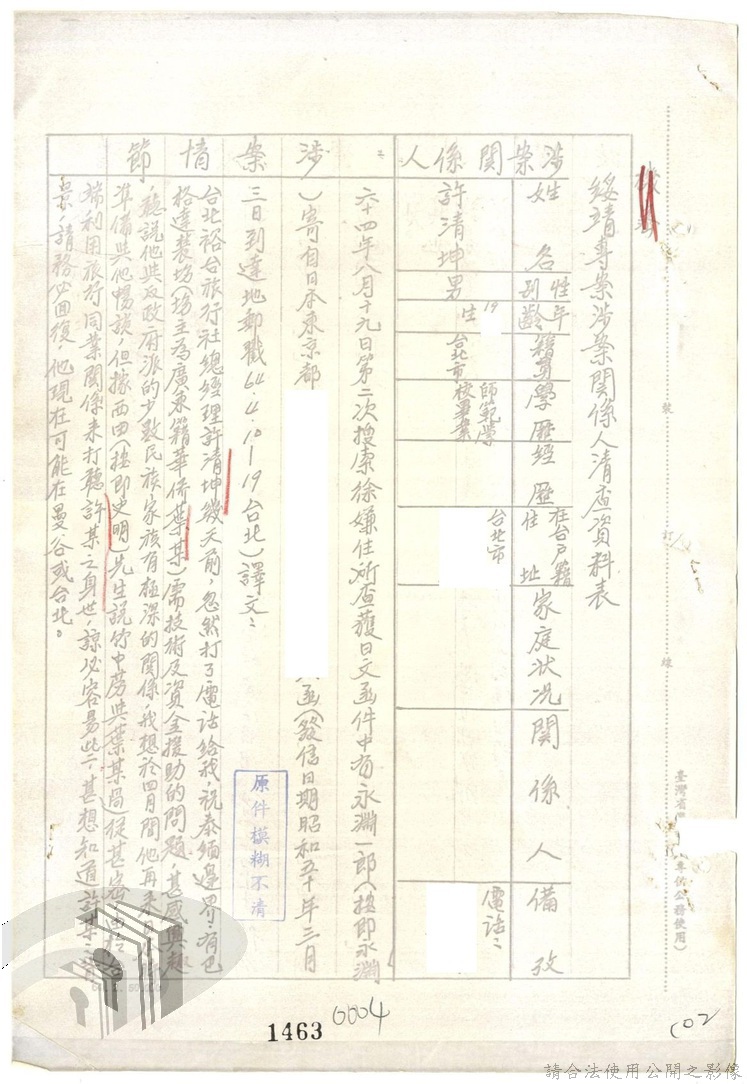 綏靖專案涉案關係人清查資料表
涉案關係人
姓名
性別
年齡
籍貫
學歷
經歷
在台戶籍住址
家庭狀況
關係人
備攷
許清坤
男
19
生
台北市
師範學校畢業
台北市
電話:
涉案情節
六十四年八月十九日第二次搜索徐嫌住所查獲日文函件中有永淵一郎(按即永淵
)寄自日本東京都
函(發信日期昭和五十年三月
三日到達地郵戳64.4.10-19台北)譯文:
台北裕台旅行社總經理許清坤幾天前,忽然打了電話給我,說泰緬邊界,有巴
格達農場(場主為廣東籍華僑葉某)需技術及資金援助的問題,甚感興趣
,聽說他與反政府派的少數民族家族有極深的關係,我想於四月間他再來日
準備與他暢談,但據西田(按即史明)先生說竹中勞與葉某過從甚密
端利用旅行同業關係來打聽許某之身世,諒必容易些,甚想知道許某之背
景,請務必回復,他現在可能在曼谷或台北。
原件模糊不清
裝
訂
線
臺灣省
專供公務使用)
1463
0004
002
請合法使用公開之影像